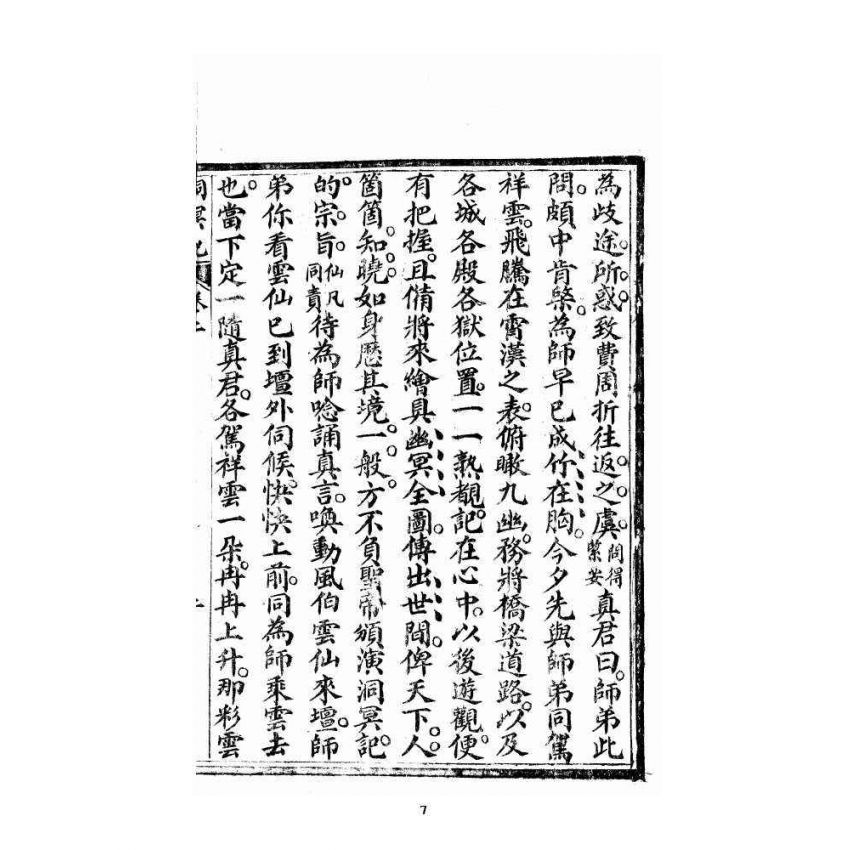 為歧途。所惑。致費周折往返。之虞。問得緊要真君曰。師弟此
問。頗中肯綮。為師早已成竹在胸。今夕先與師弟同駕
祥雲。飛騰在霄漢之表。俯瞰九幽。務將橋梁道路。以及
各城各殿各獄位置。一一熟覩。記在心中。以後遊觀。便
有把握。且備將來繪具幽冥全圖。傳出世間。俾天下。人
箇箇。知曉。如身歷其境。一般。方不負聖帝頒演洞冥記。
的。宗。旨。仙凡同責待為師唸誦真言。喚動風伯雲仙來壇。師
弟你看雲仙已到壇外伺候。快快上前。同為師乘雲去
也。當下定一隨真君。各駕祥雲一朵。冉冉上升。那彩雲
洞冥記 卷二
7